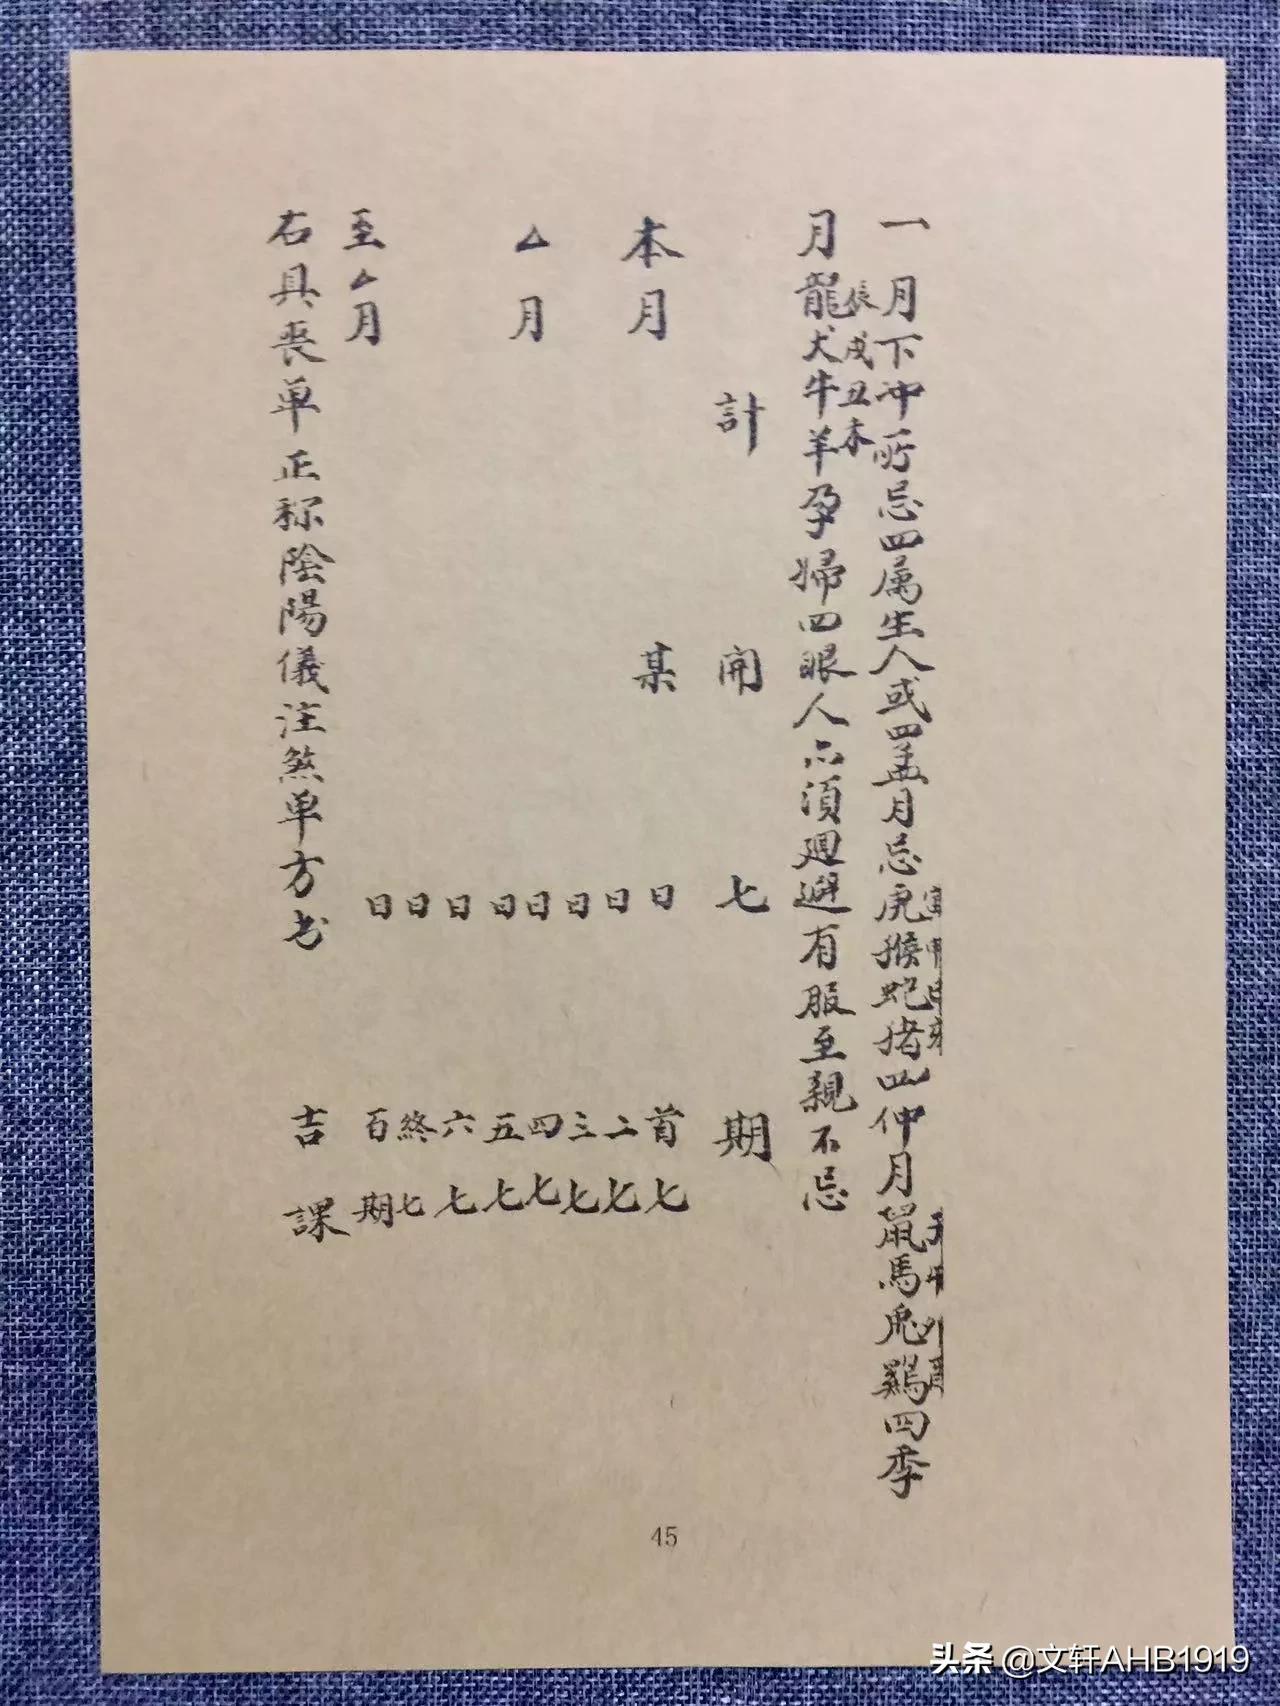 一月下冲所忌四属生人或四孟月忌虎猴蛇猪四仲月鼠馬兔鷄四季
寅申巳亥
子午卯酉
月龍犬牛羊孕婦四眼人亦須廻避有服至親不忌
辰戌丑未
計開七期
本月某日首七
日二七
日三七
△月日四七
日五七
日六七
日終七
至△月日百期
右具丧单正称陰陽儀注煞单方书吉課
45
头条 @文轩AHB1919